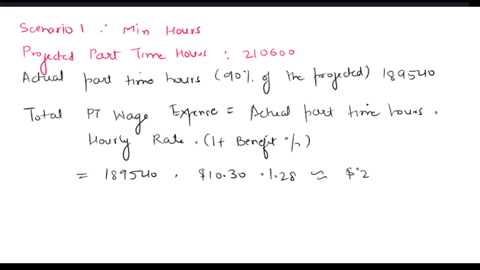 Scenario 1 ∴ Min Hours
Projected Part Time Hours : 210600
Actual part time hours (90% of the projected) 189540
Total PT Wage Expense = Actual part time hours .
Hourly Rate . (1+ Benefit %)
= 189540 . $10.30 . 1.28 ≈ $2